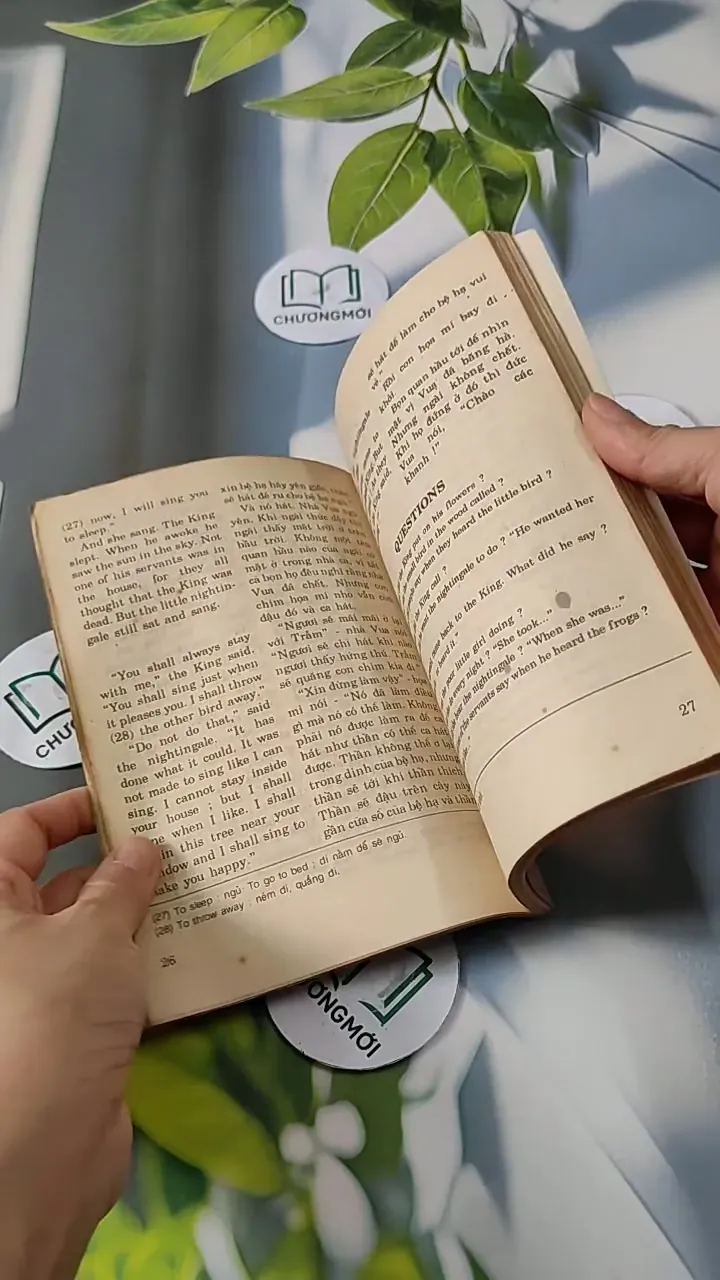 CHƯƠNGMỚI
(27) now. I will sing you
to sleep."
And she sang. The King
slept. When he awoke he
saw the sun in the sky. Not
one of his servants was in
the house, for they all
thought that the King was
dead. But the little nightin-
gale still sat and sang.
"You shall always stay
with me," the King said.
"You shall sing just when
it pleases you. I shall throw
(28) the other bird away."
"Do not do that," said
the nightingale. "It has
done what it could. It was
not made to sing like I can
sing. I cannot stay inside
your house ; but I shall
when I like. I shall
in this tree near your
and I shall sing to
you happy."
xin bệ hạ hãy yên giấc,
sẽ hát để ru cho bệ hạ
Và nó hát. Nhà Vua ngủ
yên. Khi ngài thức dậy thì
ngài thấy mặt trời ở trên
bầu trời. Không một
quan hầu nào của ngài có
mặt ở trong nhà cả, vì tất
cả bọn họ đều nghĩ rằng nhà
Vua đã chết. Nhưng con
chim họa mi nhỏ vẫn còn
đậu đó và ca hát.
"Ngươi sẽ mãi mãi ở lại
với Trẫm" - nhà Vua nói
"Ngươi sẽ chỉ hát khi nào
ngươi thấy hứng thú. Trẫm
sẽ quẳng con chim kia đi"
"Xin đừng làm vậy" - họa
mi nói - "Nó đã làm điều
gì mà nó có thể làm. Không
phải nó được làm ra để
hát như thần có thể ca hát
được. Thần không thể ở lại
trong dinh của bệ hạ, nhưng
thần sẽ tới khi thần thích
Thần sẽ đậu trên cây này
gần cửa sổ của bệ hạ và thần
(27) To sleep : ngủ. To go to bed ; đi nằm để sẽ ngủ.
(28) To throw away : ném đi, quẳng đi.
26
sẽ hát để làm cho bệ hạ vui
vẻ."
Rồi con họa mi bay đi . .
khỏi
Bọn quan hầu tới để nhìn
mặt vị Vua đã băng hà.
Nhưng ngài không chết.
Khi họ đứng ở đó thì đức
Vua nói, "Chào các
khanh !"
QUESTIONS
King put on his flowers ?
bird in the wood called ?
say when they heard the little bird ?
King call ?
the nightingale to do ? "He wanted her
back to the King. What did he say ?
heard it."
poor little girl doing ?
every night ? "She took..."
hear the nightingale ? "When she was..."
the servants say when he heard the frogs ?
27
CHƯ
ƯƠNGMỚI